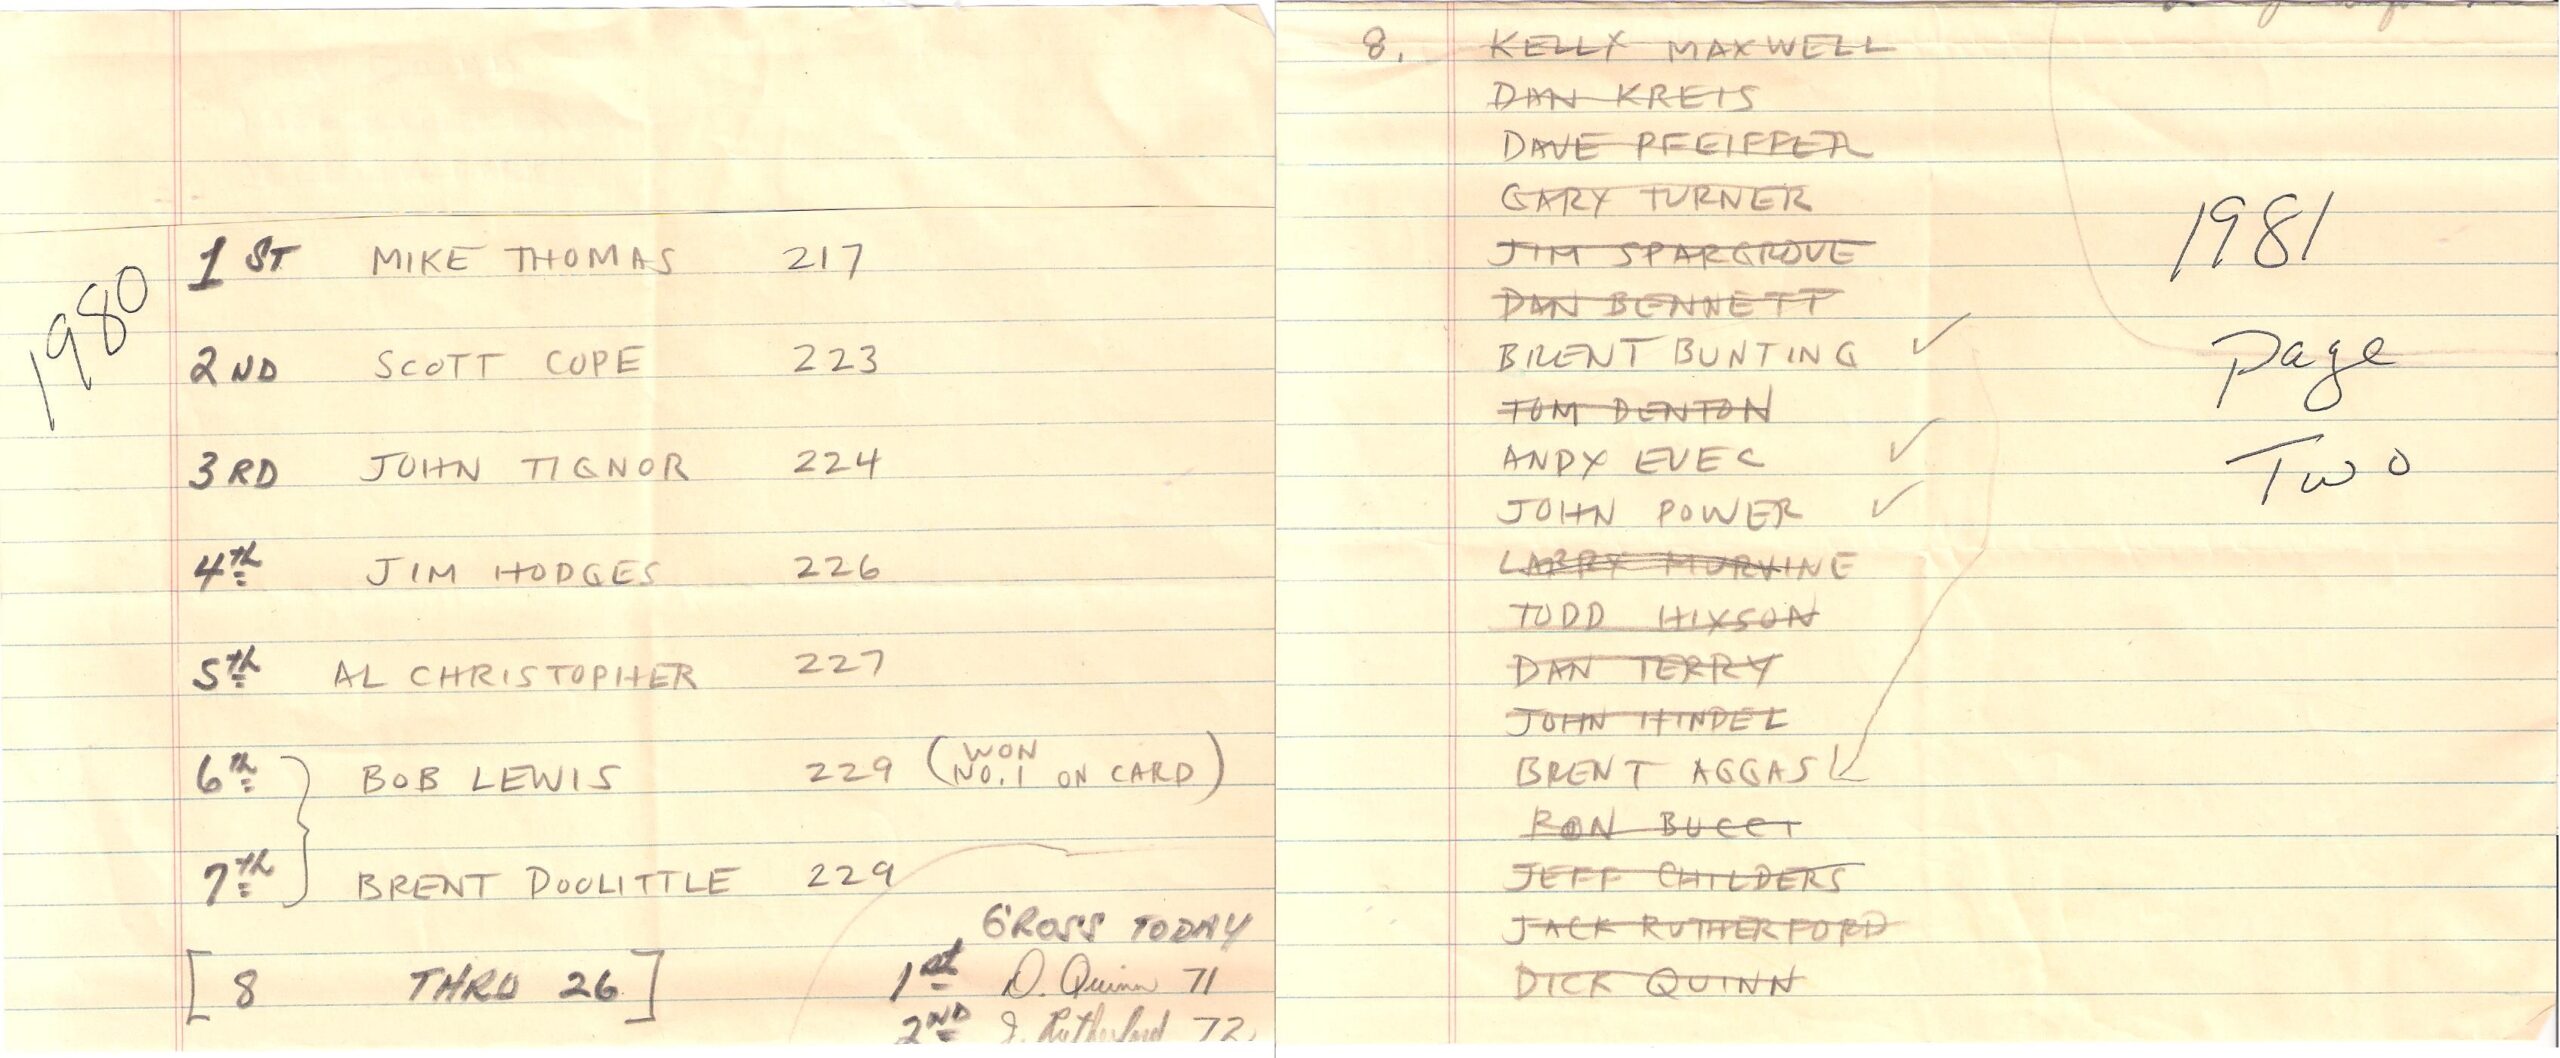 1980
1ST MIKE THOMAS 217
2ND SCOTT COPE 223
3RD JOHN TIGNOR 224
4th JIM HODGES 226
5th AL CHRISTOPHER 227
6th BOB LEWIS 229 (WON NO.1 ON CARD)
7th BRENT DOOLITTLE 229
[8 THRU 26]
GROSS TODAY
1st D. Quinn 71
2ND J. Rutherford 72
8. KELLY MAXWELL
DAN KREIS
DAVE PFEIFFER
GARY TURNER
JIM SPARGROVE
DAN BENNETT
BRENT BUNTING ✓
TOM DENTON
ANDY EVEC ✓
JOHN POWER ✓
LARRY MURVINE
TODD HIXSON
DAN TERRY
JOHN HINDEL
BRENT AGGAS
RON BUCCI
JEFF CHILDERS
JACK RUTHERFORD
DICK QUINN
1981
Page
Two